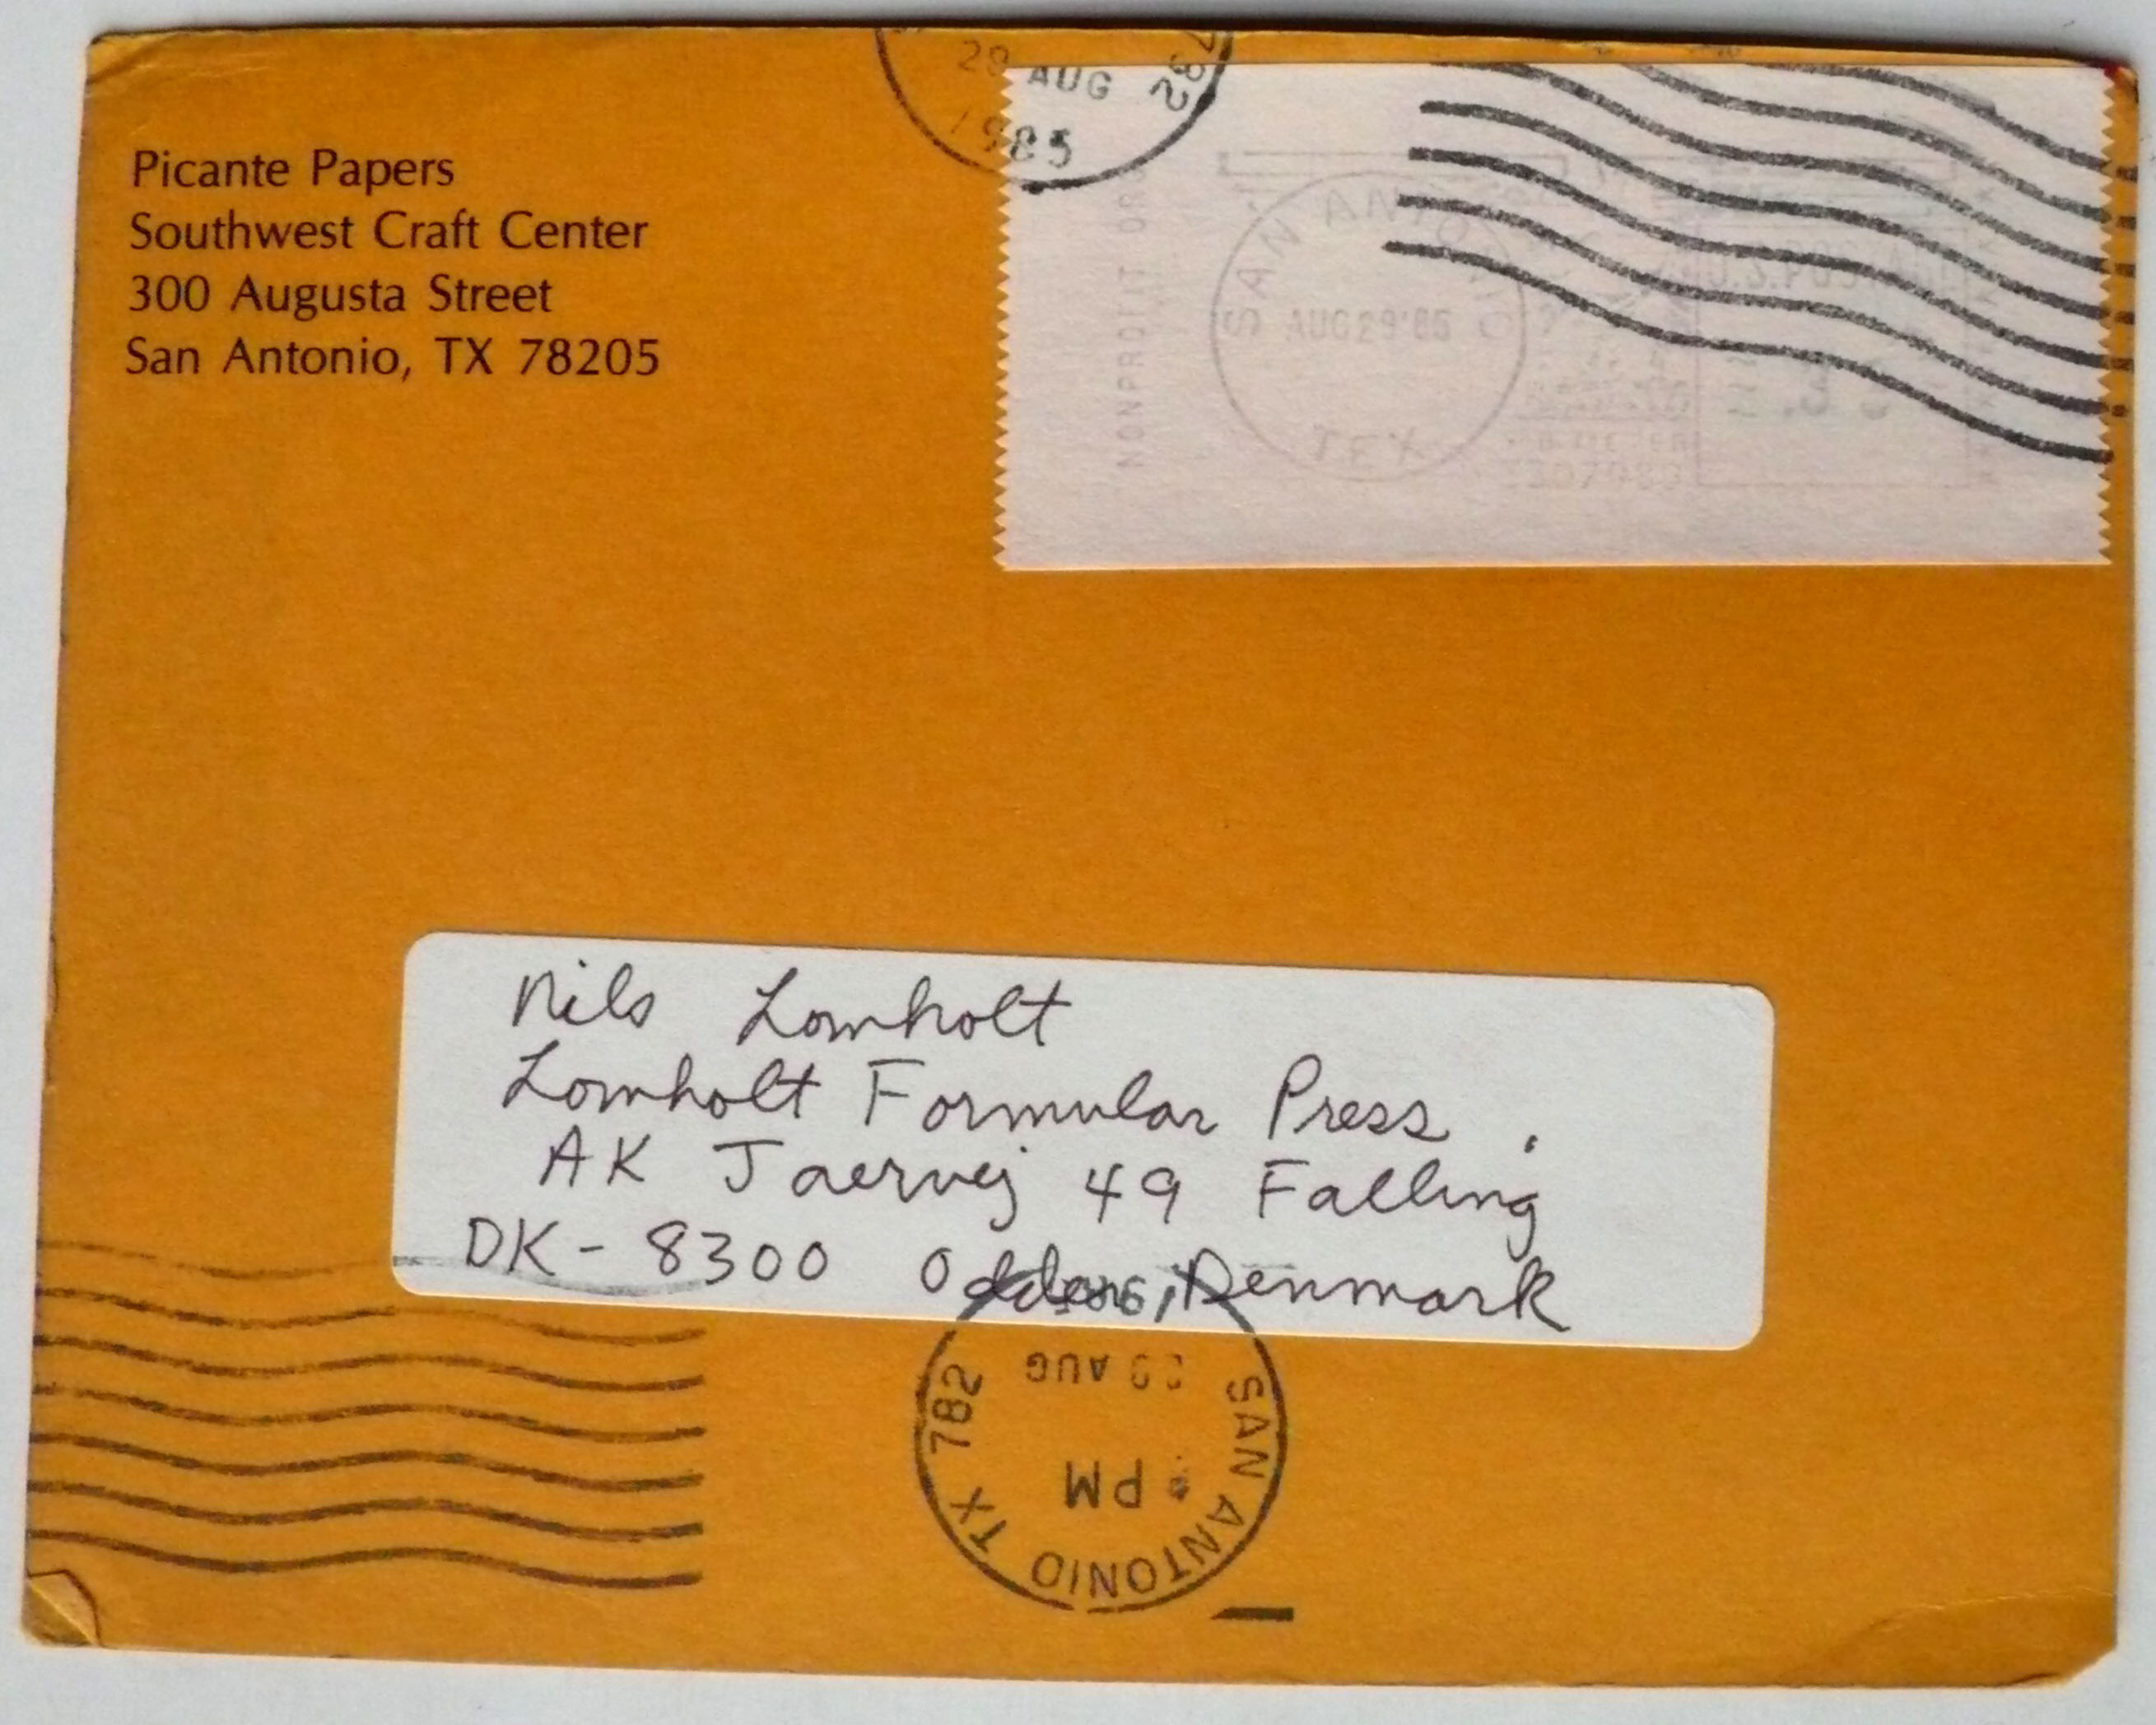 Picante Papers
Southwest Craft Center
300 Augusta Street
San Antonio, TX 78205
AUG
1985
782
NONPROFIT ORG
SAN ANTONIO
AUG29'85
TEX
U.S.POSTAGE
Nils Lomholt
Lomholt Formular Press
AK Jaervej 49 Falling
DK - 8300 Odder, Denmark
AUG
PM
SAN ANTONIO TX 782